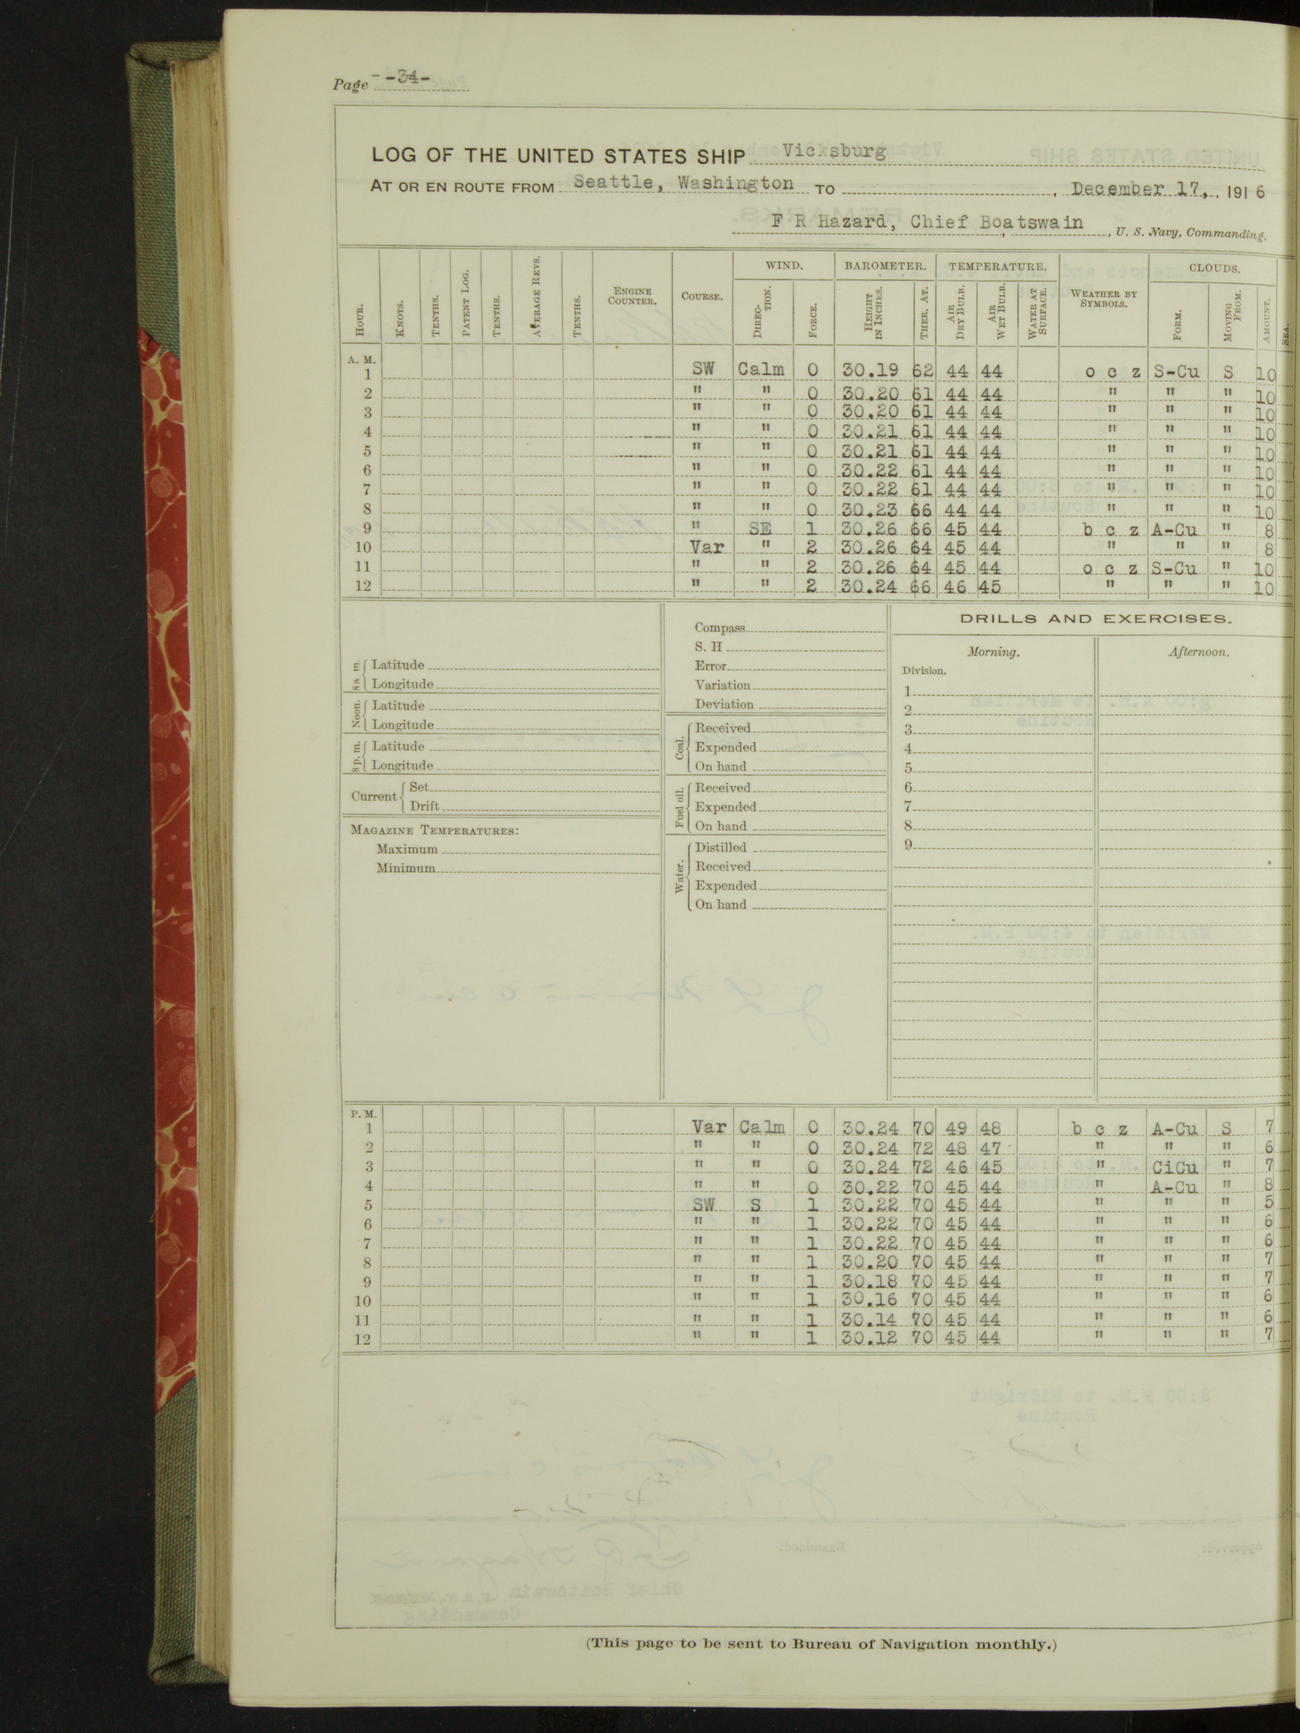 Page -34-
LOG OF THE UNITED STATES SHIP Vicksburg
AT OR EN ROUTE FROM Seattle, Washington TO , December 17, , 1916
F R Hazard, Chief Boatswain , U. S. Navy, Commanding.
HOUR. KNOTS. TENTHS. PATENT LOG. TENTHS. AVERAGE REVS. TENTHS. ENGINE COUNTER. COURSE. WIND. DIRECTION. FORCE. BAROMETER. HEIGHT IN INCHES. THER. AT. TEMPERATURE. AIR DRY BULB. AIR WET BULB. WATER AT SURFACE. WEATHER BY SYMBOLS. CLOUDS. FORM. MOVING FROM. AMOUNT. SEA.
A. M.
1 SW Calm 0 30.19 62 44 44 o c z S-Cu S 10
2 " " 0 30.20 61 44 44 " " " 10
3 " " 0 30.20 61 44 44 " " " 10
4 " " 0 30.21 61 44 44 " " " 10
5 " " 0 30.21 61 44 44 " " " 10
6 " " 0 30.22 61 44 44 " " " 10
7 " " 0 30.22 61 44 44 " " " 10
8 " " 0 30.23 66 44 44 " " " 10
9 " SE 1 30.26 66 45 44 b c z A-Cu " 8
10 Var " 2 30.26 64 45 44 " " " 8
11 " " 2 30.26 64 45 44 o c z S-Cu " 10
12 " " 2 30.24 66 46 45 " " " 10
8 a. m. Latitude
Longitude
Noon. Latitude
Longitude
8 p. m. Latitude
Longitude
Current Set
Drift
MAGAZINE TEMPERATURES:
Maximum
Minimum
Compass
S. H
Error
Variation
Deviation
Coal. Received
Expended
On hand
Fuel oil. Received
Expended
On hand
Water. Distilled
Received
Expended
On hand
DRILLS AND EXERCISES.
Morning. Afternoon.
Division.
1
2
3
4
5
6
7
8
9
P. M.
1 Var Calm 0 30.24 70 49 48 b c z A-Cu S 7
2 " " 0 30.24 72 48 47 " " " 6
3 " " 0 30.24 72 46 45 " CiCu " 7
4 " " 0 30.22 70 45 44 " A-Cu " 8
5 SW S 1 30.22 70 45 44 " " " 5
6 " " 1 30.22 70 45 44 " " " 6
7 " " 1 30.22 70 45 44 " " " 6
8 " " 1 30.20 70 45 44 " " " 7
9 " " 1 30.18 70 45 44 " " " 7
10 " " 1 30.16 70 45 44 " " " 6
11 " " 1 30.14 70 45 44 " " " 6
12 " " 1 30.12 70 45 44 " " " 7
(This page to be sent to Bureau of Navigation monthly.)